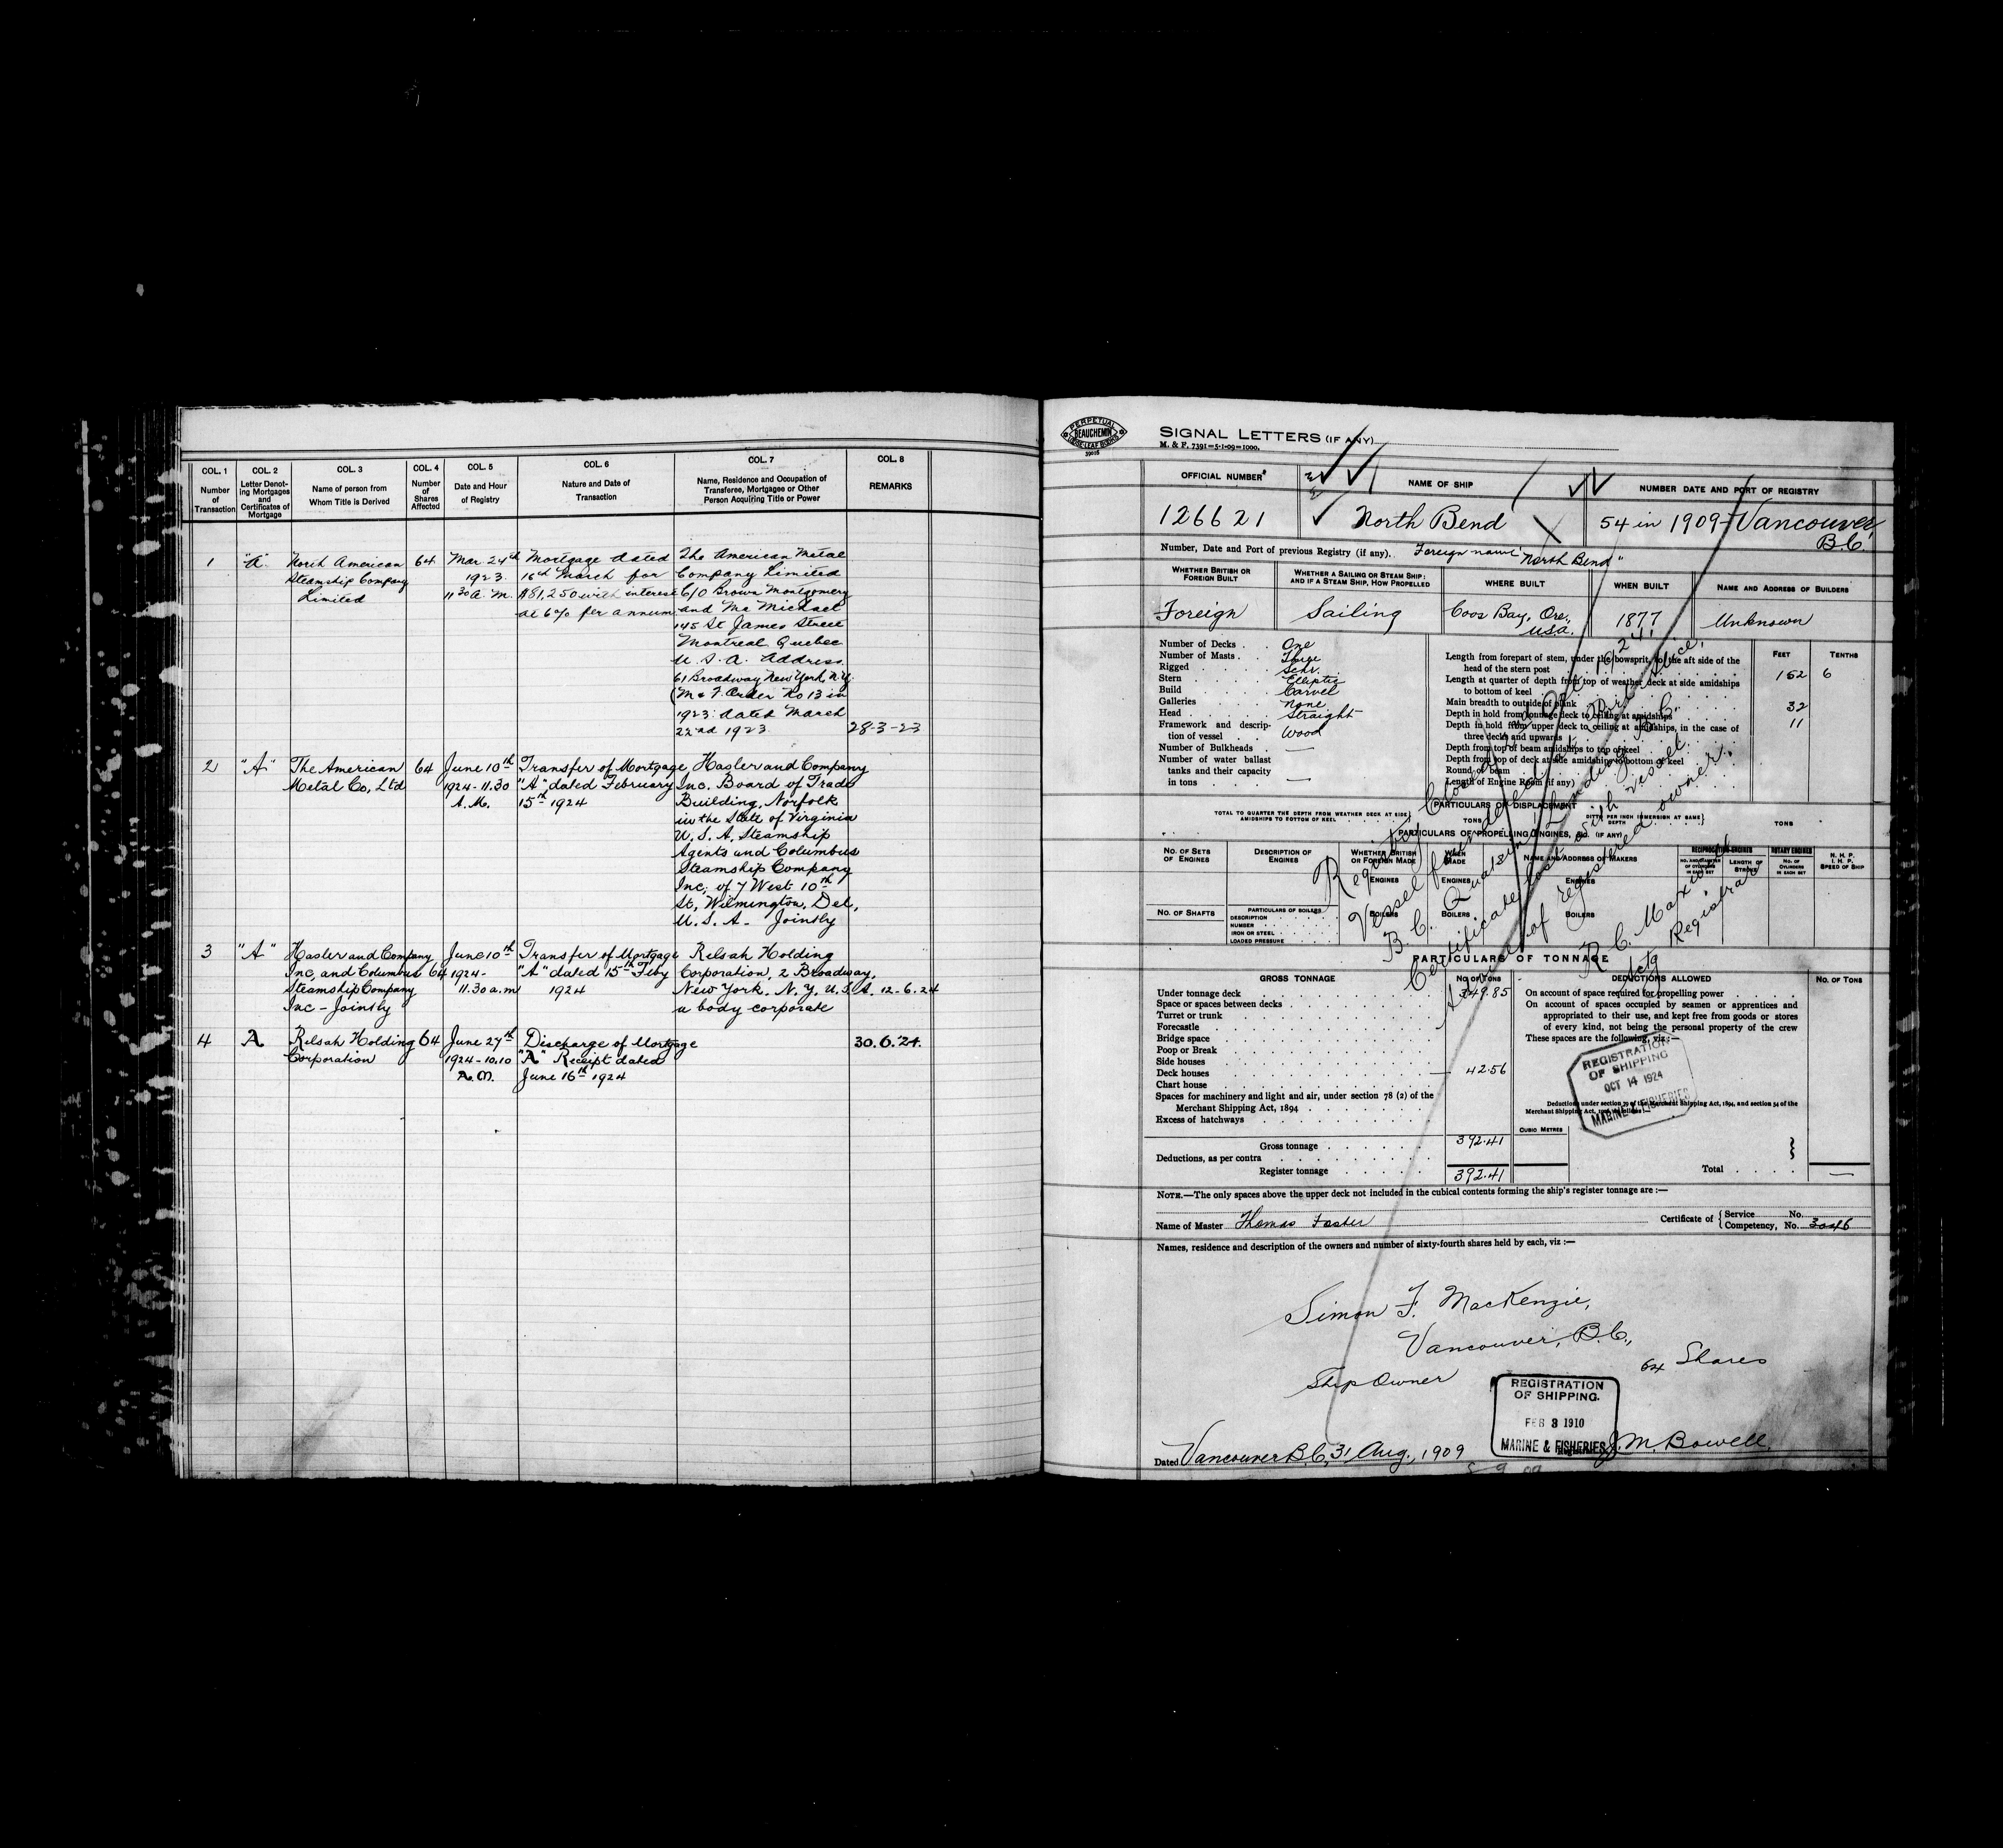 COL. 1
Number
of
Transaction
COL. 2
Letter Denot-
ing Mortgages
and
Certificates of
Mortgage
COL. 3
Name of person from
Whom Title is Derived
COL. 4
Number
of
Shares
Affected
COL. 5
Date and Hour
of Registry
COL. 6
Nature and Date of
Transaction
COL. 7
Name, Residence and Occupation of
Transferee, Mortgagee or Other
Person Acquiring Title or Power
COL. 8
REMARKS
1
"A"
North American
Steamship Company
Limited
64
Mar 24th
1923
11 30 A. M.
Mortgage dated
16th March for
$81,250 with interest
at 6% per annum
The American Metal
Company Limited
C/O Brown Montgomery
and Mc Michael
145 St James Street
Montreal Quebec
U. S. A. Address
61 Broadway New York N.Y.
(M & F. Order No 13 in
1923. dated March
22nd 1923.
28-3-23
2
"A"
The American
Metal Co, Ltd
64
June 10th
1924 - 11.30
A. M.
Transfer of Mortgage
"A" dated February
15th 1924
Hasler and Company
Inc. Board of Trade
Building, Norfolk
in the State of Virginia
U. S. A. Steamship
Agents and Columbus
Steamship Company
Inc; of 7 West 10th
St, Wilmington, Del,
U. S. A - Jointly
3
"A"
Hasler and Company
Inc, and Columbus
Steamship Company
Inc - Jointly
64
June 10th
1924 -
11.30 a.m
Transfer of Mortgage
"A" dated 15th Feby
1924
Relsah Holding
Corporation, 2 Broadway,
New York, N. Y, U. S. A.
a body corporate
12-6-24
4
A
Relsah Holding
Corporation
64
June 27th
1924 - 10.10
A. M.
Discharge of Mortgage
"A" Receipt dated
June 16th 1924
30.6.'24.
PERPETUAL
BEAUCHEMIN
LOOSE-LEAF BOOKS
39026
SIGNAL LETTERS (IF ANY)
M. & F. 7391—5-1-09—1000.
OFFICIAL NUMBER
NAME OF SHIP
NUMBER DATE AND PORT OF REGISTRY
126621
North Bend
54 in 1909 - Vancouver
B.C.
Number, Date and Port of previous Registry (if any). Foreign name "North Bend"
WHETHER BRITISH OR
FOREIGN BUILT
WHETHER A SAILING OR STEAM SHIP;
AND IF A STEAM SHIP, HOW PROPELLED
WHERE BUILT
WHEN BUILT
NAME AND ADDRESS OF BUILDERS
Foreign
Sailing
Coos Bay, Ore.,
USA.
1877
Unknown
Number of Decks . . One
Number of Masts . Three
Rigged . . . Schr.
Stern . . . Elliptic
Build . . . Carvel
Galleries . . . None
Head . . . Straight
Framework and descrip-
tion of vessel . . Wood
Number of Bulkheads . —
Number of water ballast
tanks and their capacity
in tons . . . —
FEET
TENTHS
Length from forepart of stem, under the bowsprit, to the aft side of the
head of the stern post
152 6
Length at quarter of depth from top of weather deck at side amidships
to bottom of keel
Main breadth to outside of plank
32
Depth in hold from tonnage deck to ceiling at amidships
11
Depth in hold from upper deck to ceiling at amidships, in the case of
three decks and upwards
Depth from top of beam amidships to top of keel
Depth from top of deck at side amidships to bottom of keel
Round of beam
Length of Engine Room (if any)
PARTICULARS OF DISPLACEMENT
TOTAL TO QUARTER THE DEPTH FROM WEATHER DECK AT SIDE
AMIDSHIPS TO BOTTOM OF KEEL
TONS
DITTO PER INCH IMMERSION AT SAME
DEPTH
TONS
PARTICULARS OF PROPELLING ENGINES, &c. (IF ANY)
NO. OF SETS
OF ENGINES
DESCRIPTION OF
ENGINES
WHETHER BRITISH
OR FOREIGN MADE
WHEN
MADE
NAME AND ADDRESS OF MAKERS
RECIPROCATING ENGINES
NO. AND DIAMETER
OF CYLINDERS
IN EACH SET
LENGTH OF
STROKE
ROTARY ENGINES
NO. OF
CYLINDERS
IN EACH SET
N. H. P.
I. H. P.
SPEED OF SHIP
ENGINES
ENGINES
ENGINES
NO. OF SHAFTS
PARTICULARS OF BOILERS
DESCRIPTION
NUMBER
IRON OR STEEL
LOADED PRESSURE
BOILERS
BOILERS
BOILERS
Registry Closed
Vessel foundered
B. C. Landing B.C.
Certificate lost with vessel.
of registered owner.
R. C. Maxwell
Actg Registrar
PARTICULARS OF TONNAGE
GROSS TONNAGE
NO. OF TONS
DEDUCTIONS ALLOWED
NO. OF TONS
Under tonnage deck 349.85
Space or spaces between decks
Turret or trunk
Forecastle
Bridge space
Poop or Break
Side houses
Deck houses 42.56
Chart house
Spaces for machinery and light and air, under section 78 (2) of the
Merchant Shipping Act, 1894
Excess of hatchways
Gross tonnage 392.41
Deductions, as per contra
Register tonnage 392.41
On account of space required for propelling power
On account of spaces occupied by seamen or apprentices and
appropriated to their use, and kept free from goods or stores
of every kind, not being the personal property of the crew
These spaces are the following, viz:—
REGISTRATION
OF SHIPPING
OCT 14 1924
MARINE & FISHERIES
Deductions under section 79 of the Merchant Shipping Act, 1894, and section 54 of the
Merchant Shipping Act,
CUBIC METRES
Total —
NOTE.—The only spaces above the upper deck not included in the cubical contents forming the ship's register tonnage are :—
Name of Master Thomas Foster
Certificate of Service No.
Competency, No. 3046
Names, residence and description of the owners and number of sixty-fourth shares held by each, viz :—
Simon F. MacKenzie,
Vancouver, B.C.,
Ship Owner
64 Shares
REGISTRATION
OF SHIPPING.
FEB 3 1910
MARINE & FISHERIES
Dated Vancouver B.C, 31 Aug., 1909
J. M. Bowell.